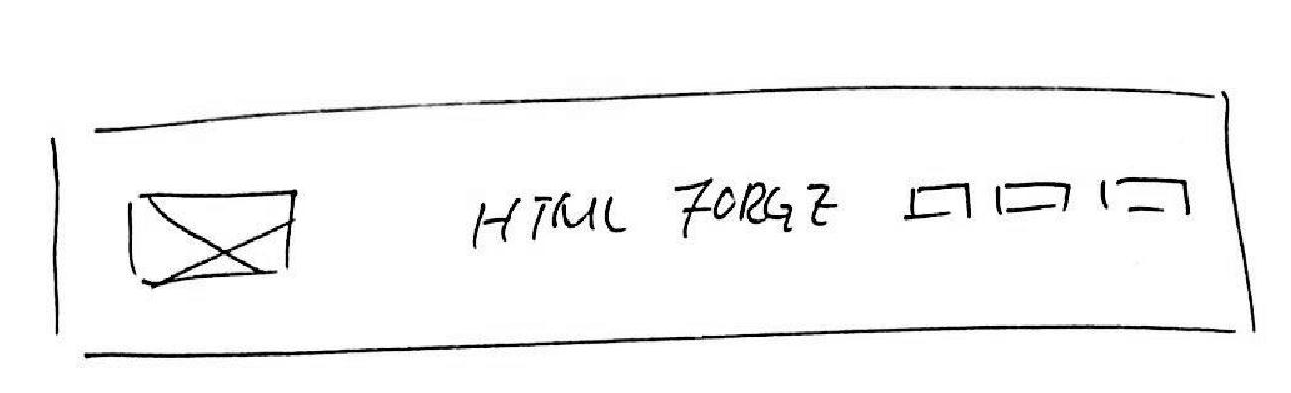 HTML FORGE